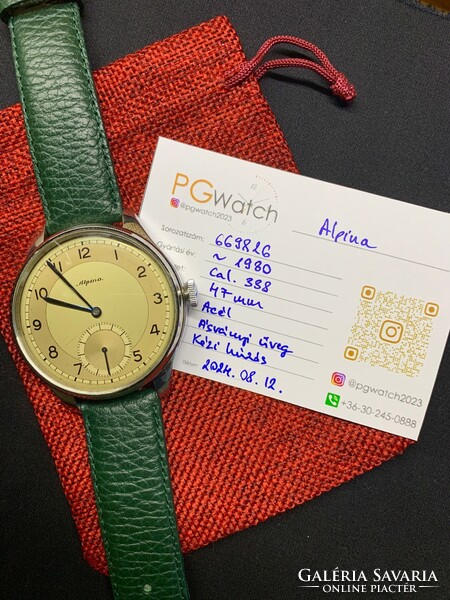 PGwatch
@pgwatch2023
Alpina
Sorozatszám: 669826
Gyártási év: ~ 1930
Cal. 388
47 mm
Acél
Ásványi üveg
Kézi húzás
Dátum: 2024. 08. 12.
@pgwatch2023
+36-30-245-0888
Alpina
12
1
2
3
4
5
7
8
9
10
11
GALÉRIA SAVARIA
ONLINE PIACTÉR